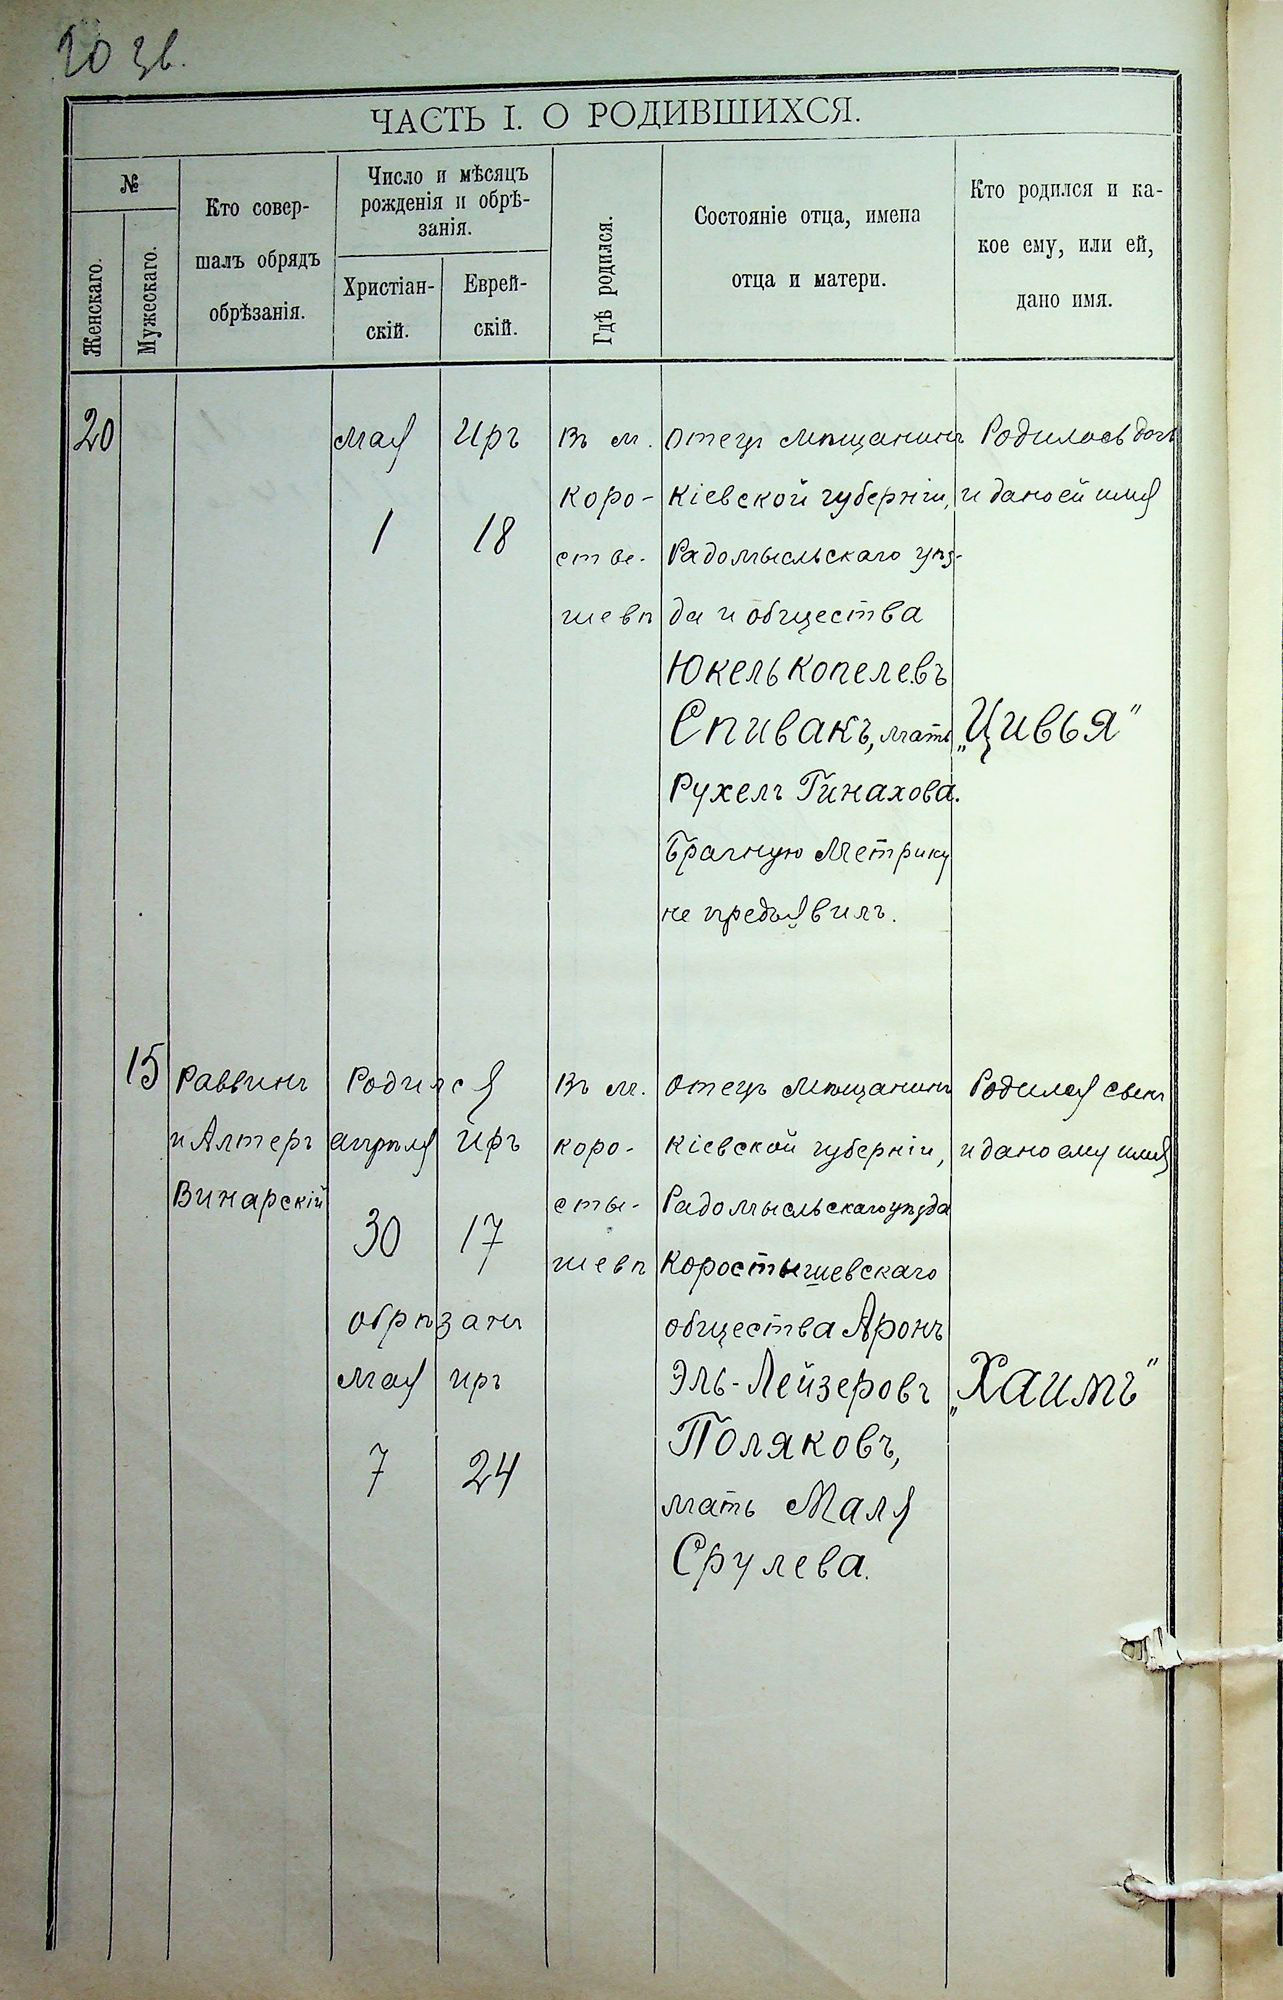 20 зв.
ЧАСТЬ I. О РОДИВШИХСЯ.
№
Женскаго.
Мужескаго.
Кто совер-
шалъ обрядъ
обрѣзанія.
Число и мѣсяцъ
рожденія и обрѣ-
занія.
Христіан-
скій.
Еврей-
скій.
Гдѣ родился.
Состояніе отца, имена
отца и матери.
Кто родился и ка-
кое ему, или ей,
дано имя.
20
мая
1
Иръ
18
Въ м.
Коро-
сты-
шевѣ
Отецъ мѣщанинъ
Кіевской губерніи,
Радомысльскаго уѣз-
да и общества
Юкель Копелевъ
Спивакъ, мать
Рухель Пинахова.
Брачную метрику
не предъявилъ.
Родилась дочь
и дано ей имя
„Цивья"
15
Раввинъ
и Алтеръ
Винарскій
Родился
апрѣля Иръ
30 17
обрѣзанъ
мая иръ
7 24
Въ м.
Коро-
сты-
шевѣ
Отецъ мѣщанинъ
Кіевской губерніи,
Радомысльскаго уѣзда
Коростышевскаго
общества Аронъ
Эль-Лейзеровъ
Поляковъ,
мать Маля
Срулева.
Родился сынъ
и дано ему имя
„Хаимъ"